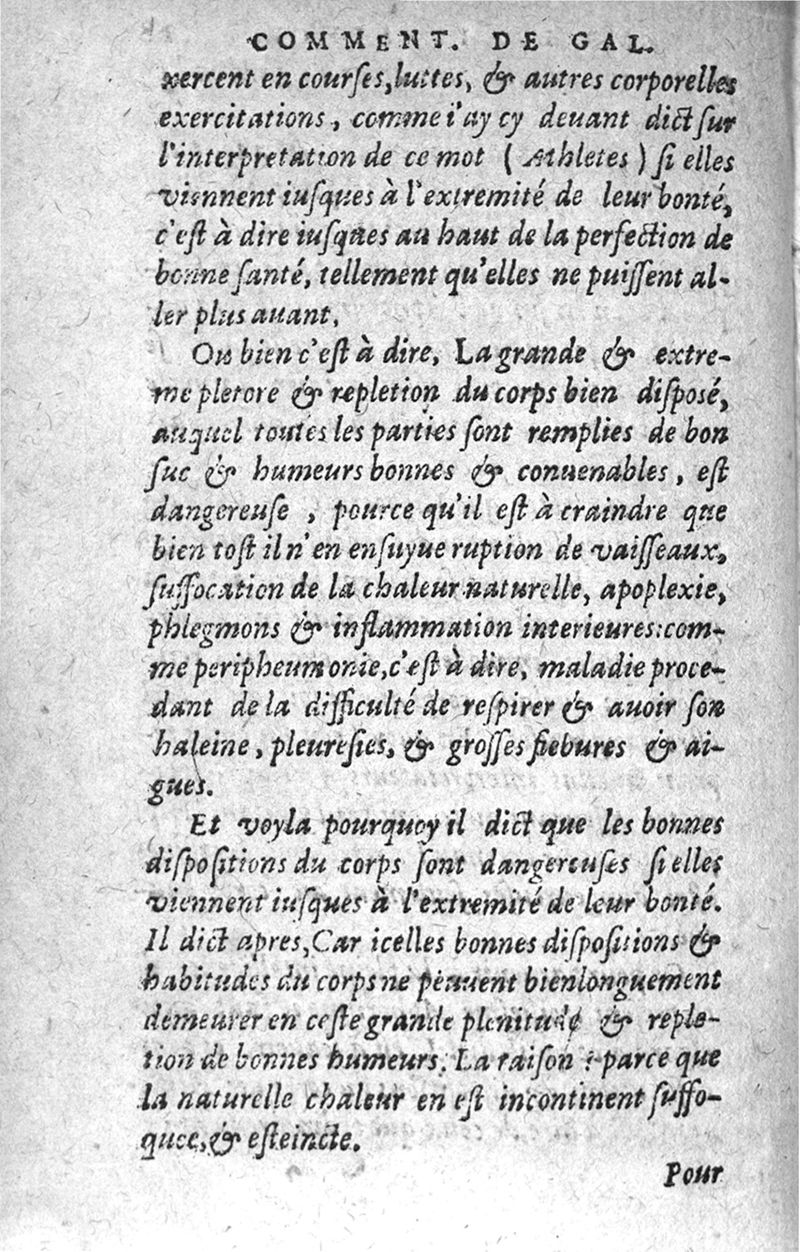 COMMENT. DE GAL.
xercent en courſes, luttes, & autres corporelles
exercitations, comme i'ay cy deuant dict ſur
l'interpretation de ce mot (Athletes) ſi elles
viennent iuſques à l'extremité de leur bonté,
c'eſt à dire iuſques au haut de la perfection de
bonne ſanté, tellement qu'elles ne puiſſent al-
ler plus auant.
Ou bien c'eſt à dire, La grande & extre-
me pletore & repletion du corps bien diſpoſé,
auquel toutes les parties ſont remplies de bon
ſuc & humeurs bonnes & conuenables, eſt
dangereuſe, pource qu'il eſt à craindre que
bien toſt il n'en enſuyue ruption de vaiſſeaux,
ſuffocation de la chaleur naturelle, apoplexie,
phlegmons & inflammation interieures: com-
me peripheumonie, c'eſt à dire, maladie proce-
dant de la difficulté de reſpirer & auoir ſon
haleine, pleureſies, & groſſes fiebures & ai-
gues.
Et voyla pourquoy il dict que les bonnes
diſpoſitions du corps ſont dangereuſes ſi elles
viennent iuſques à l'extremité de leur bonté.
Il dict apres, Car icelles bonnes diſpoſitions &
habitudes du corps ne peuuent bien longuement
demeurer en ceſte grande plenitude & reple-
tion de bonnes humeurs. La raiſon : parce que
la naturelle chaleur en eſt incontinent ſuffo-
quee, & eſteincte.
Pour